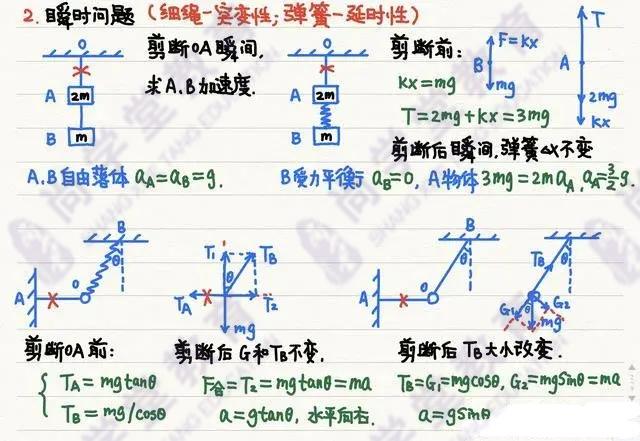 2. 瞬时问题 (细绳-突变性; 弹簧-延时性)
O
A 2m
B m
剪断OA瞬间,
求A.B加速度.
O
A 2m
B m
剪断前:
kx=mg
T=2mg+kx=3mg
F=kx
B
mg
T
A
2mg
kx
剪断后瞬间,弹簧△x不变
A.B自由落体 aA=aB=g.
B受力平衡 aB=0, A物体3mg=2maA, aA=3/2g.
B
θ
A
O
T1
TB
θ
TA
T2
mg
B
θ
A
O
θ
TB
G1
θ
G2
mg
剪断OA前:
TA=mgtanθ
TB=mg/cosθ
剪断后G和TB不变,
F合=T2=mgtanθ=ma
a=gtanθ, 水平向右.
剪断后TB大小改变.
TB=G1=mgcosθ, G2=mgsinθ=ma
a=gsinθ